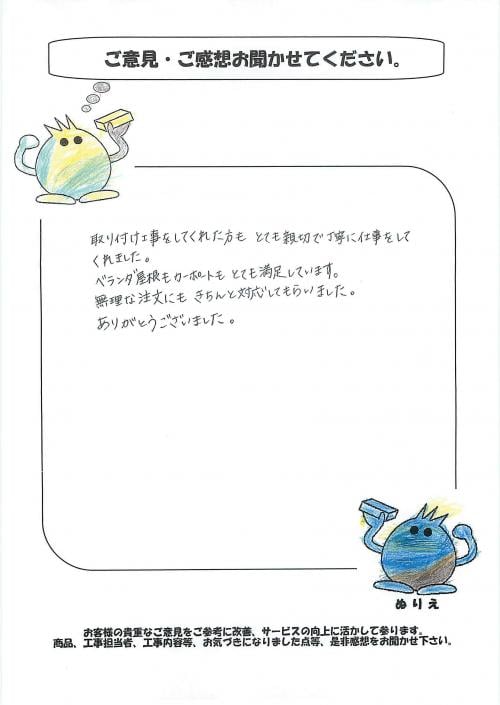 ご意見・ご感想お聞かせてください。
取り付け工事をしてくれた方も とても親切で丁寧に仕事をして
くれました。
ベランダ屋根もカーポートも とても満足しています。
無理な注文にも きちんと対応してもらいました。
ありがとうございました。
ぬりえ
お客様の貴重なご意見をご参考に改善、サービスの向上に活かして参ります。
商品、工事担当者、工事内容等、お気づきになりました点等、是非感想をお聞かせ下さい。